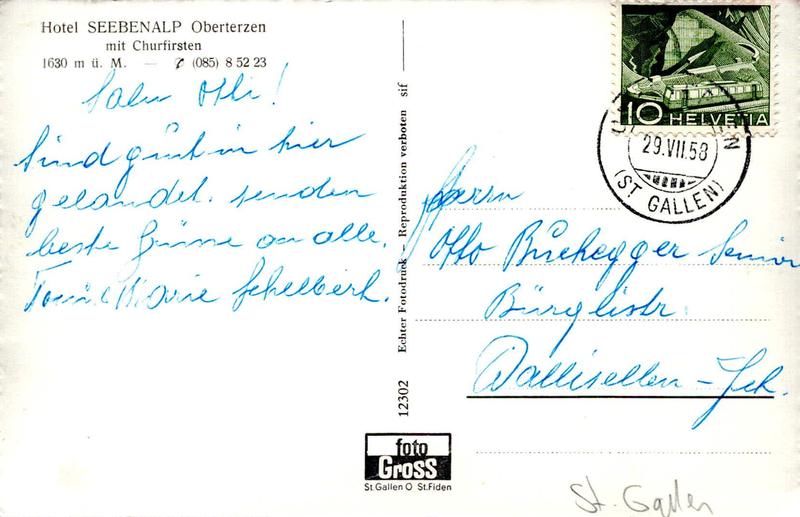 Hotel SEEBENALP Oberterzen
mit Churfirsten
1630 m ü. M. — (085) 8 52 23
Salu Otti!
Sind gut in hier
gelandet. senden
beste Grüsse an alle.
Marie Schelbert.
12302 Echter Fotodruck – Reproduktion verboten sif
foto
Gross
St.Gallen O St.Fiden
10 HELVETIA
29.VII.58
(ST GALLEN)
Herrn
Otto Buchegger Senior
Bürglistr.
Wallisellen – Zch.
St. Gallen